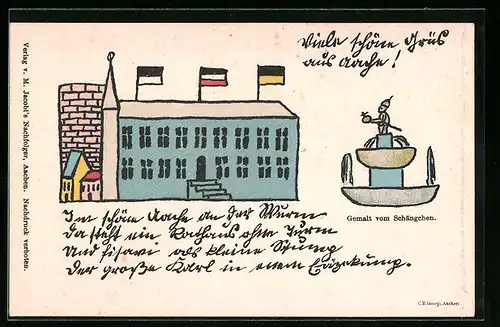 Viele schöne Grüs
aus Aache!
Verlag v. M. Jacobi's Nachfolger, Aachen. Nachdruck verboten.
Gemalt vom Schängchen.
Im schöne Aache an der Wurm
Da steht ein Rathaus ohne Turm
Und fisavi als kleine Stump
Der große Karl in enem
C.H. Georgi, Aachen